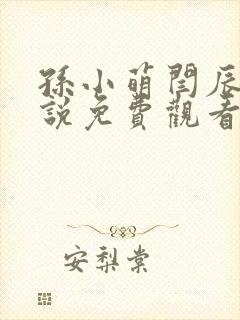 孫小萌閆辰
說免費觀看
安梨棠